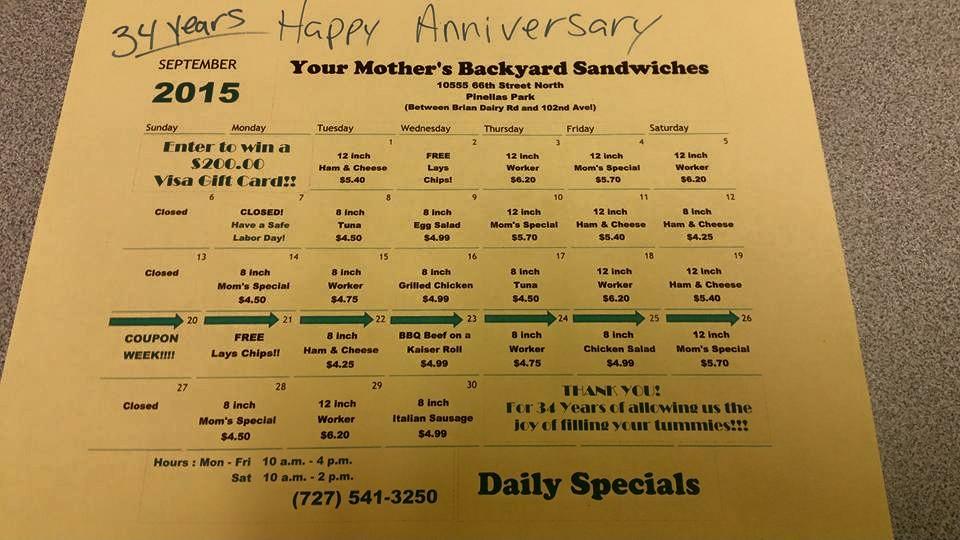 34 years Happy Anniversary
SEPTEMBER
2015
Your Mother's Backyard Sandwiches
10555 66th Street North
Pinellas Park
(Between Brian Dairy Rd and 102nd Ave!)
Sunday Monday Tuesday Wednesday Thursday Friday Saturday
Enter to win a
$200.00
Visa Gift Card!!
1 2 3 4 5
12 inch FREE 12 inch 12 inch 12 inch
Ham & Cheese Lays Worker Mom's Special Worker
$5.40 Chips! $6.20 $5.70 $6.20
6 7 8 9 10 11 12
Closed CLOSED! 8 inch 8 inch 12 inch 12 inch 8 inch
Have a Safe Tuna Egg Salad Mom's Special Ham & Cheese Ham & Cheese
Labor Day! $4.50 $4.99 $5.70 $5.40 $4.25
13 14 15 16 17 18 19
Closed 8 inch 8 inch 8 inch 8 inch 12 inch 12 inch
Mom's Special Worker Grilled Chicken Tuna Worker Ham & Cheese
$4.50 $4.75 $4.99 $4.50 $6.20 $5.40
20 21 22 23 24 25 26
COUPON FREE 8 inch BBQ Beef on a 8 inch 8 inch 12 inch
WEEK!!!! Lays Chips!! Ham & Cheese Kaiser Roll Worker Chicken Salad Mom's Special
$4.25 $4.99 $4.75 $4.99 $5.70
27 28 29 30
Closed 8 inch 12 inch 8 inch
Mom's Special Worker Italian Sausage
$4.50 $6.20 $4.99
THANK YOU!
For 34 Years of allowing us the
joy of filling your tummies!!!
Hours : Mon - Fri 10 a.m. - 4 p.m.
Sat 10 a.m. - 2 p.m.
(727) 541-3250
Daily Specials